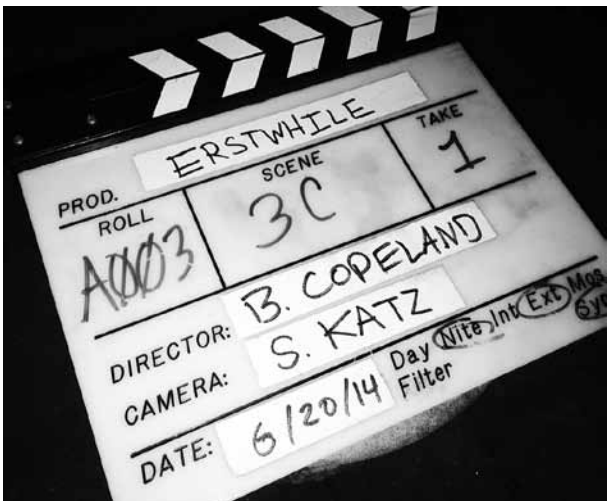 PROD. ERSTWHILE
ROLL SCENE TAKE
A003 3C 1
DIRECTOR: B. COPELAND
CAMERA: S. KATZ
DATE: 6/20/14 Day Nite Int Ext Mos
Filter Syn